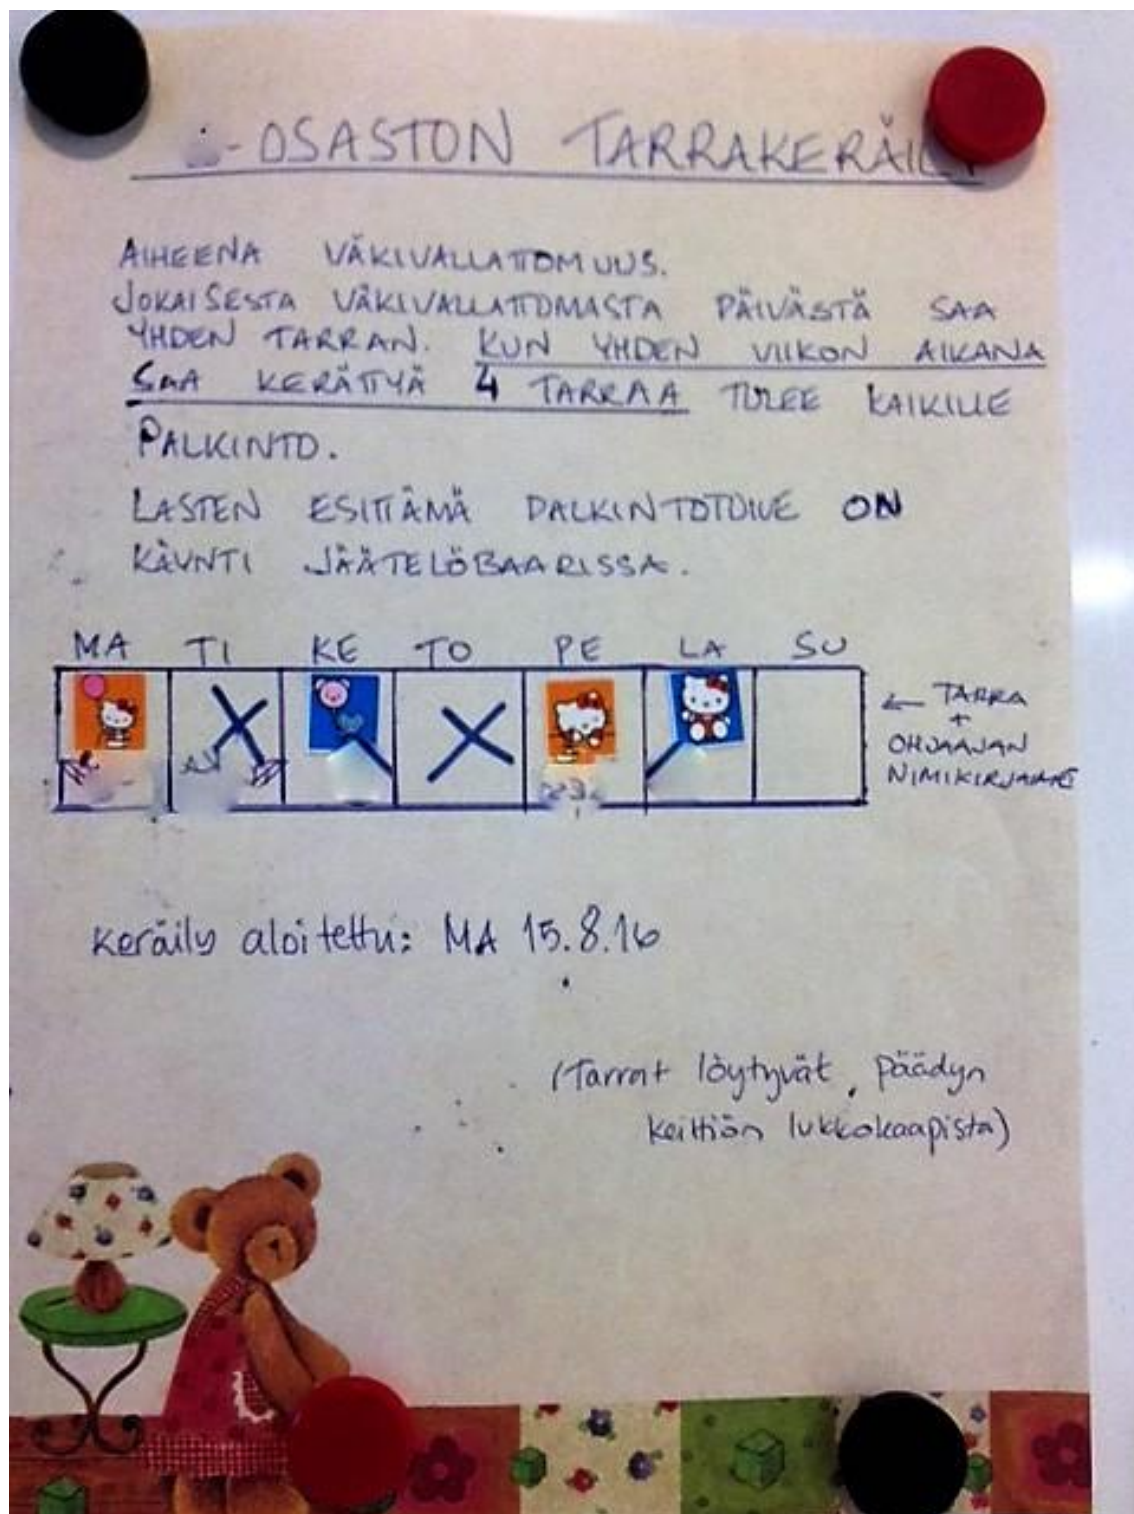 -OSASTON TARRAKERÄIL
AIHEENA VÄKIVALLATTOMUUS.
JOKAISESTA VÄKIVALLATTOMASTA PÄIVÄSTÄ SAA
YHDEN TARRAN. KUN YHDEN VIIKON AIKANA
SAA KERÄTTYÄ 4 TARRAA TULEE KAIKILLE
PALKINTO.
LASTEN ESITTÄMÄ PALKINTOTOIVE ON
KÄYNTI JÄÄTELÖBAARISSA.
MA TI KE TO PE LA SU
← TARRA
+
OHJAAJAN
NIMIKIRJAIMET
Keräily aloitettu: MA 15.8.16
(Tarrat löytyvät päädyn
keittiön lukkokaapista)